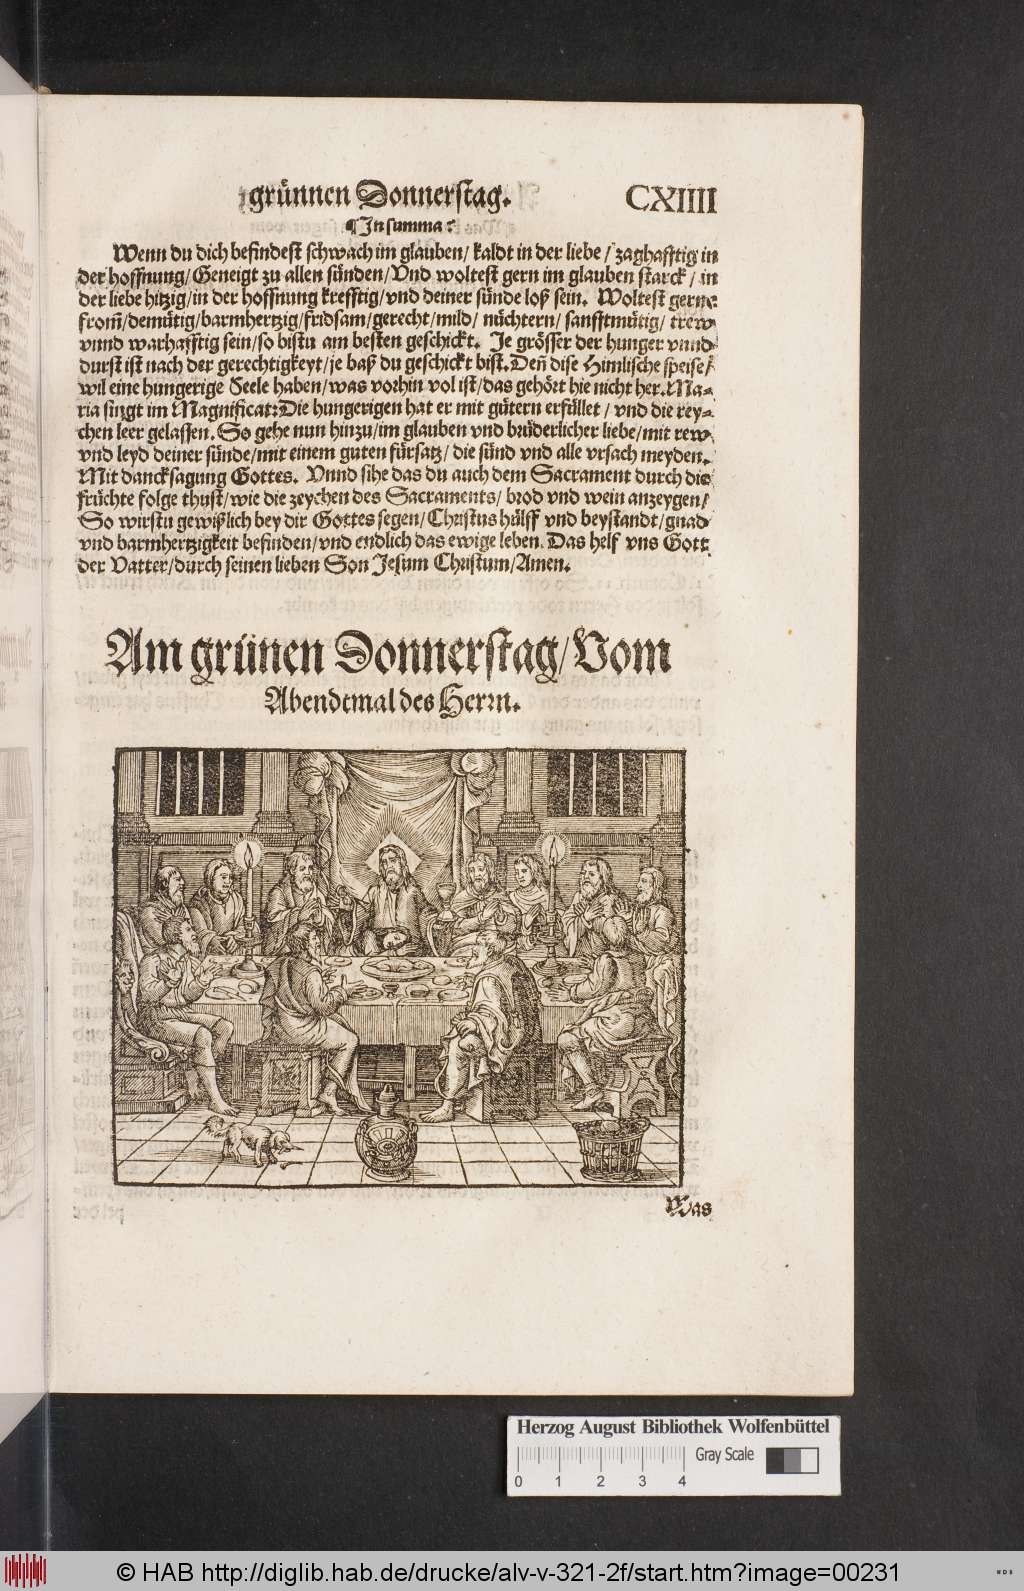 grünnen Donnerstag.
CXIIII
¶In summa:
Wenn du dich befindest schwach im glauben/ kaldt in der liebe/ zaghafftig in
der hoffnung/ Geneigt zu allen sünden/ Vnd woltest gern im glauben starck/ in
der liebe hitzig/ in der hoffnung krefftig/ vnd deiner sünde loß sein. Woltest gerne
from̃/ demütig/ barmhertzig/ fridsam/ gerecht/ mild/ nüchtern/ sanfftmütig/ trew
vnnd warhafftig sein/ so bistu am besten geschickt. Je grösser der hunger vnnd
durst ist nach der gerechtigkeyt/ je baß du geschickt bist. Deñ dise Himlische speise/
wil eine hungerige Seele haben/ was vorhin vol ist/ das gehört hie nicht her. Ma⸗
ria singt im Magnificat: Die hungerigen hat er mit gütern erfüllet/ vnd die rey⸗
chen leer gelassen. So gehe nun hinzu/ im glauben vnd brüderlicher liebe/ mit rew
vnd leyd deiner sünde/ mit einem guten fürsatz/ die sünd vnd alle vrsach meyden.
Mit dancksagung Gottes. Vnnd sihe das du auch dem Sacrament durch die
früchte folge thust/ wie die zeychen des Sacraments/ brod vnd wein anzeygen/
So wirstu gewißlich bey dir Gottes segen/ Christus hülff vnd beystandt/ gnad
vnd barmhertzigkeit befinden/ vnd endlich das ewige leben. Das helf vns Gott
der Vatter/ durch seinen lieben Son Jesum Christum/ Amen.
Am grünen Donnerstag/ Vom
Abendtmal des Herrn.
Was
Herzog August Bibliothek Wolfenbüttel
Gray Scale
0 1 2 3 4
© HAB http://diglib.hab.de/drucke/alv-v-321-2f/start.htm?image=00231